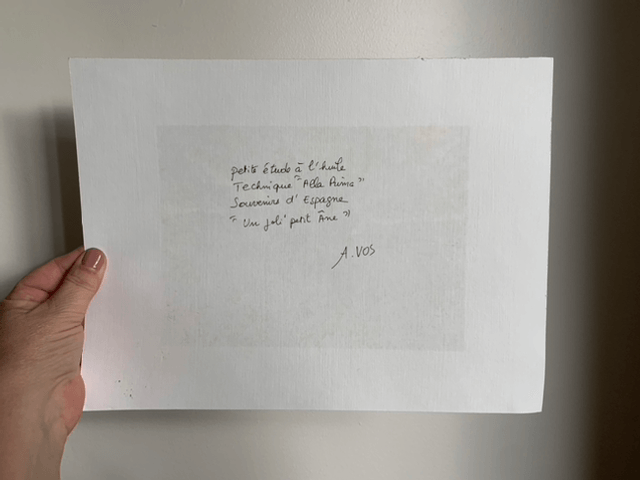 petite étude à l'huile
Technique "Alla Prima"
Souvenirs d'Espagne
"Un joli petit Âne"
A. VOS